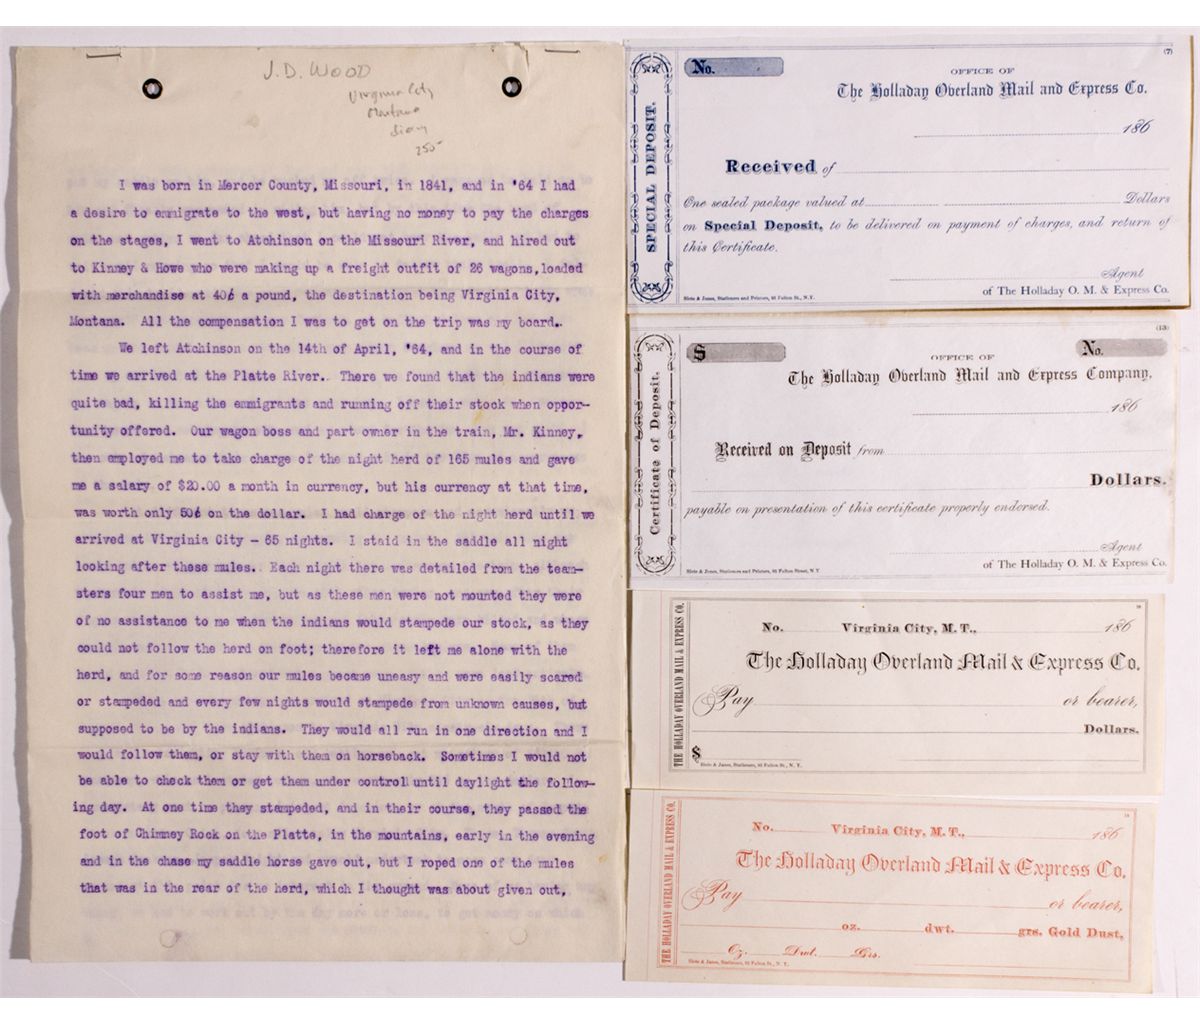 J.D. WOOD
Virginia City
Montana
diary
250-
I was born in Mercer County, Missouri, in 1841, and in '64 I had
a desire to emmigrate to the west, but having no money to pay the charges
on the stages, I went to Atchinson on the Missouri River, and hired out
to Kinney & Howe who were making up a freight outfit of 26 wagons,loaded
with merchandise at 40¢ a pound, the destination being Virginia City,
Montana. All the compensation I was to get on the trip was my board..
We left Atchinson on the 14th of April, '64, and in the course of
time we arrived at the Platte River.. There we found that the indians were
quite bad, killing the emmigrants and running off their stock when oppor-
tunity offered. Our wagon boss and part owner in the train, Mr. Kinney,
then employed me to take charge of the night herd of 165 mules and gave
me a salary of $20.00 a month in currency, but his currency at that time,
was worth only 50¢ on the dollar. I had charge of the night herd until we
arrived at Virginia City - 65 nights. I staid in the saddle all night
looking after these mules.. Each night there was detailed from the team-
sters four men to assist me, but as these men were not mounted they were
of no assistance to me when the indians would stampede our stock, as they
could not follow the herd on foot; therefore it left me alone with the
herd, and for some reason our mules became uneasy and were easily scared
or stampeded and every few nights would stampede from unknown causes, but
supposed to be by the indians. They would all run in one direction and I
would follow them, or stay with them on horseback. Sometimes I would not
be able to check them or get them under control until daylight the follow-
ing day. At one time they stampeded, and in their course, they passed the
foot of Chimney Rock on the Platte, in the mountains, early in the evening
and in the chase my saddle horse gave out, but I roped one of the mules
that was in the rear of the herd, which I thought was about given out,
(7)
SPECIAL DEPOSIT.
No.
OFFICE OF
The Holladay Overland Mail and Express Co.
186
Received of
One sealed package valued at Dollars
on Special Deposit, to be delivered on payment of charges, and return of
this Certificate.
Agent
of The Holladay O. M. & Express Co.
Slote & Janes, Stationers and Printers, 93 Fulton St., N.Y.
(13)
Certificate of Deposit.
$ No.
OFFICE OF
The Holladay Overland Mail and Express Company,
186
Received on Deposit from
Dollars.
payable on presentation of this certificate properly endorsed.
Agent
of The Holladay O. M. & Express Co.
Slote & Janes, Stationers and Printers, 93 Fulton Street, N.Y.
THE HOLLADAY OVERLAND MAIL & EXPRESS CO.
No. Virginia City, M. T., 186
The Holladay Overland Mail & Express Co.
Pay or bearer,
Dollars.
$
Slote & Janes, Stationers, 93 Fulton St., N. Y.
THE HOLLADAY OVERLAND MAIL & EXPRESS CO.
No. Virginia City, M. T., 186
The Holladay Overland Mail & Express Co.
Pay or bearer,
oz. dwt. grs. Gold Dust,
Oz. Dwt. Grs.
Slote & Janes, Stationers, 93 Fulton St., N. Y.